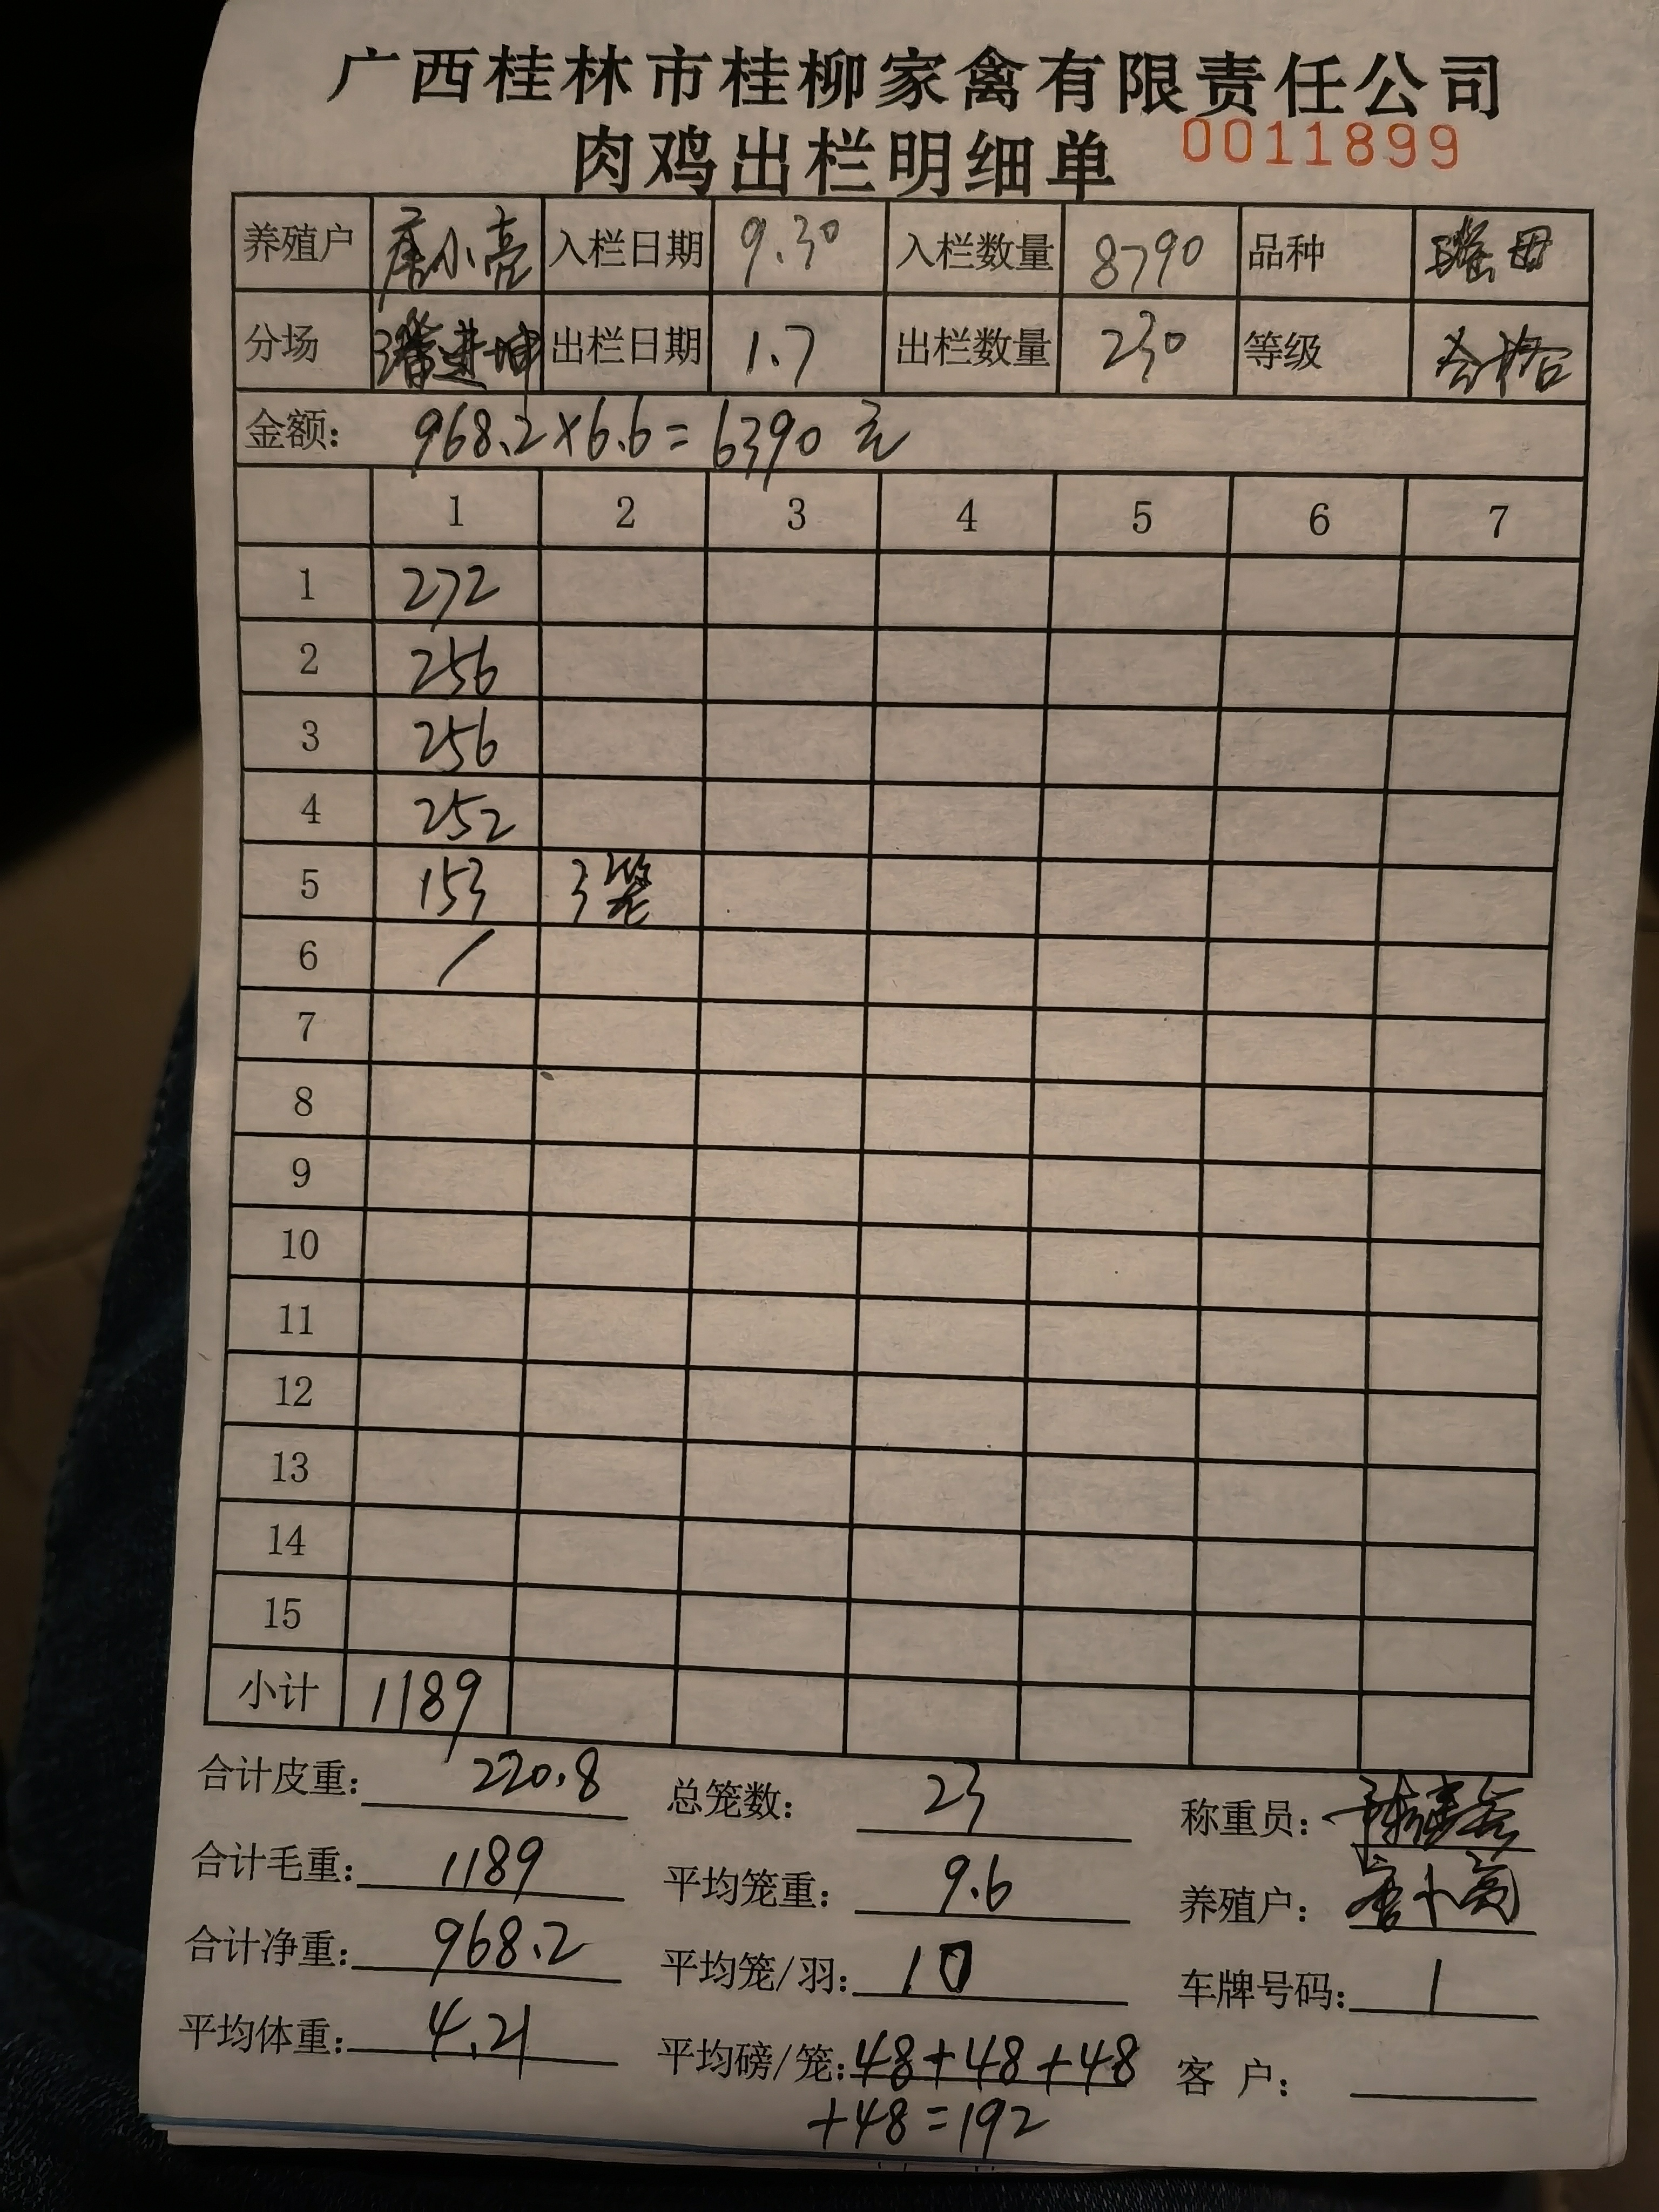 广西桂林市桂柳家禽有限责任公司
肉鸡出栏明细单 0011899
养殖户 唐小亮 入栏日期 9.30 入栏数量 8790 品种 瑶母
分场 潘进坤 出栏日期 1.7 出栏数量 230 等级 合格
金额: 968.2×6.6=6390元
1 2 3 4 5 6 7
1 272
2 256
3 256
4 252
5 153 3笼
6 /
7
8
9
10
11
12
13
14
15
小计 1189
合计皮重: 220.8 总笼数: 23 称重员:
合计毛重: 1189 平均笼重: 9.6 养殖户: 唐小亮
合计净重: 968.2 平均笼/羽: 10 车牌号码: 1
平均体重: 4.21 平均磅/笼: 48+48+48 客 户:
+48=192